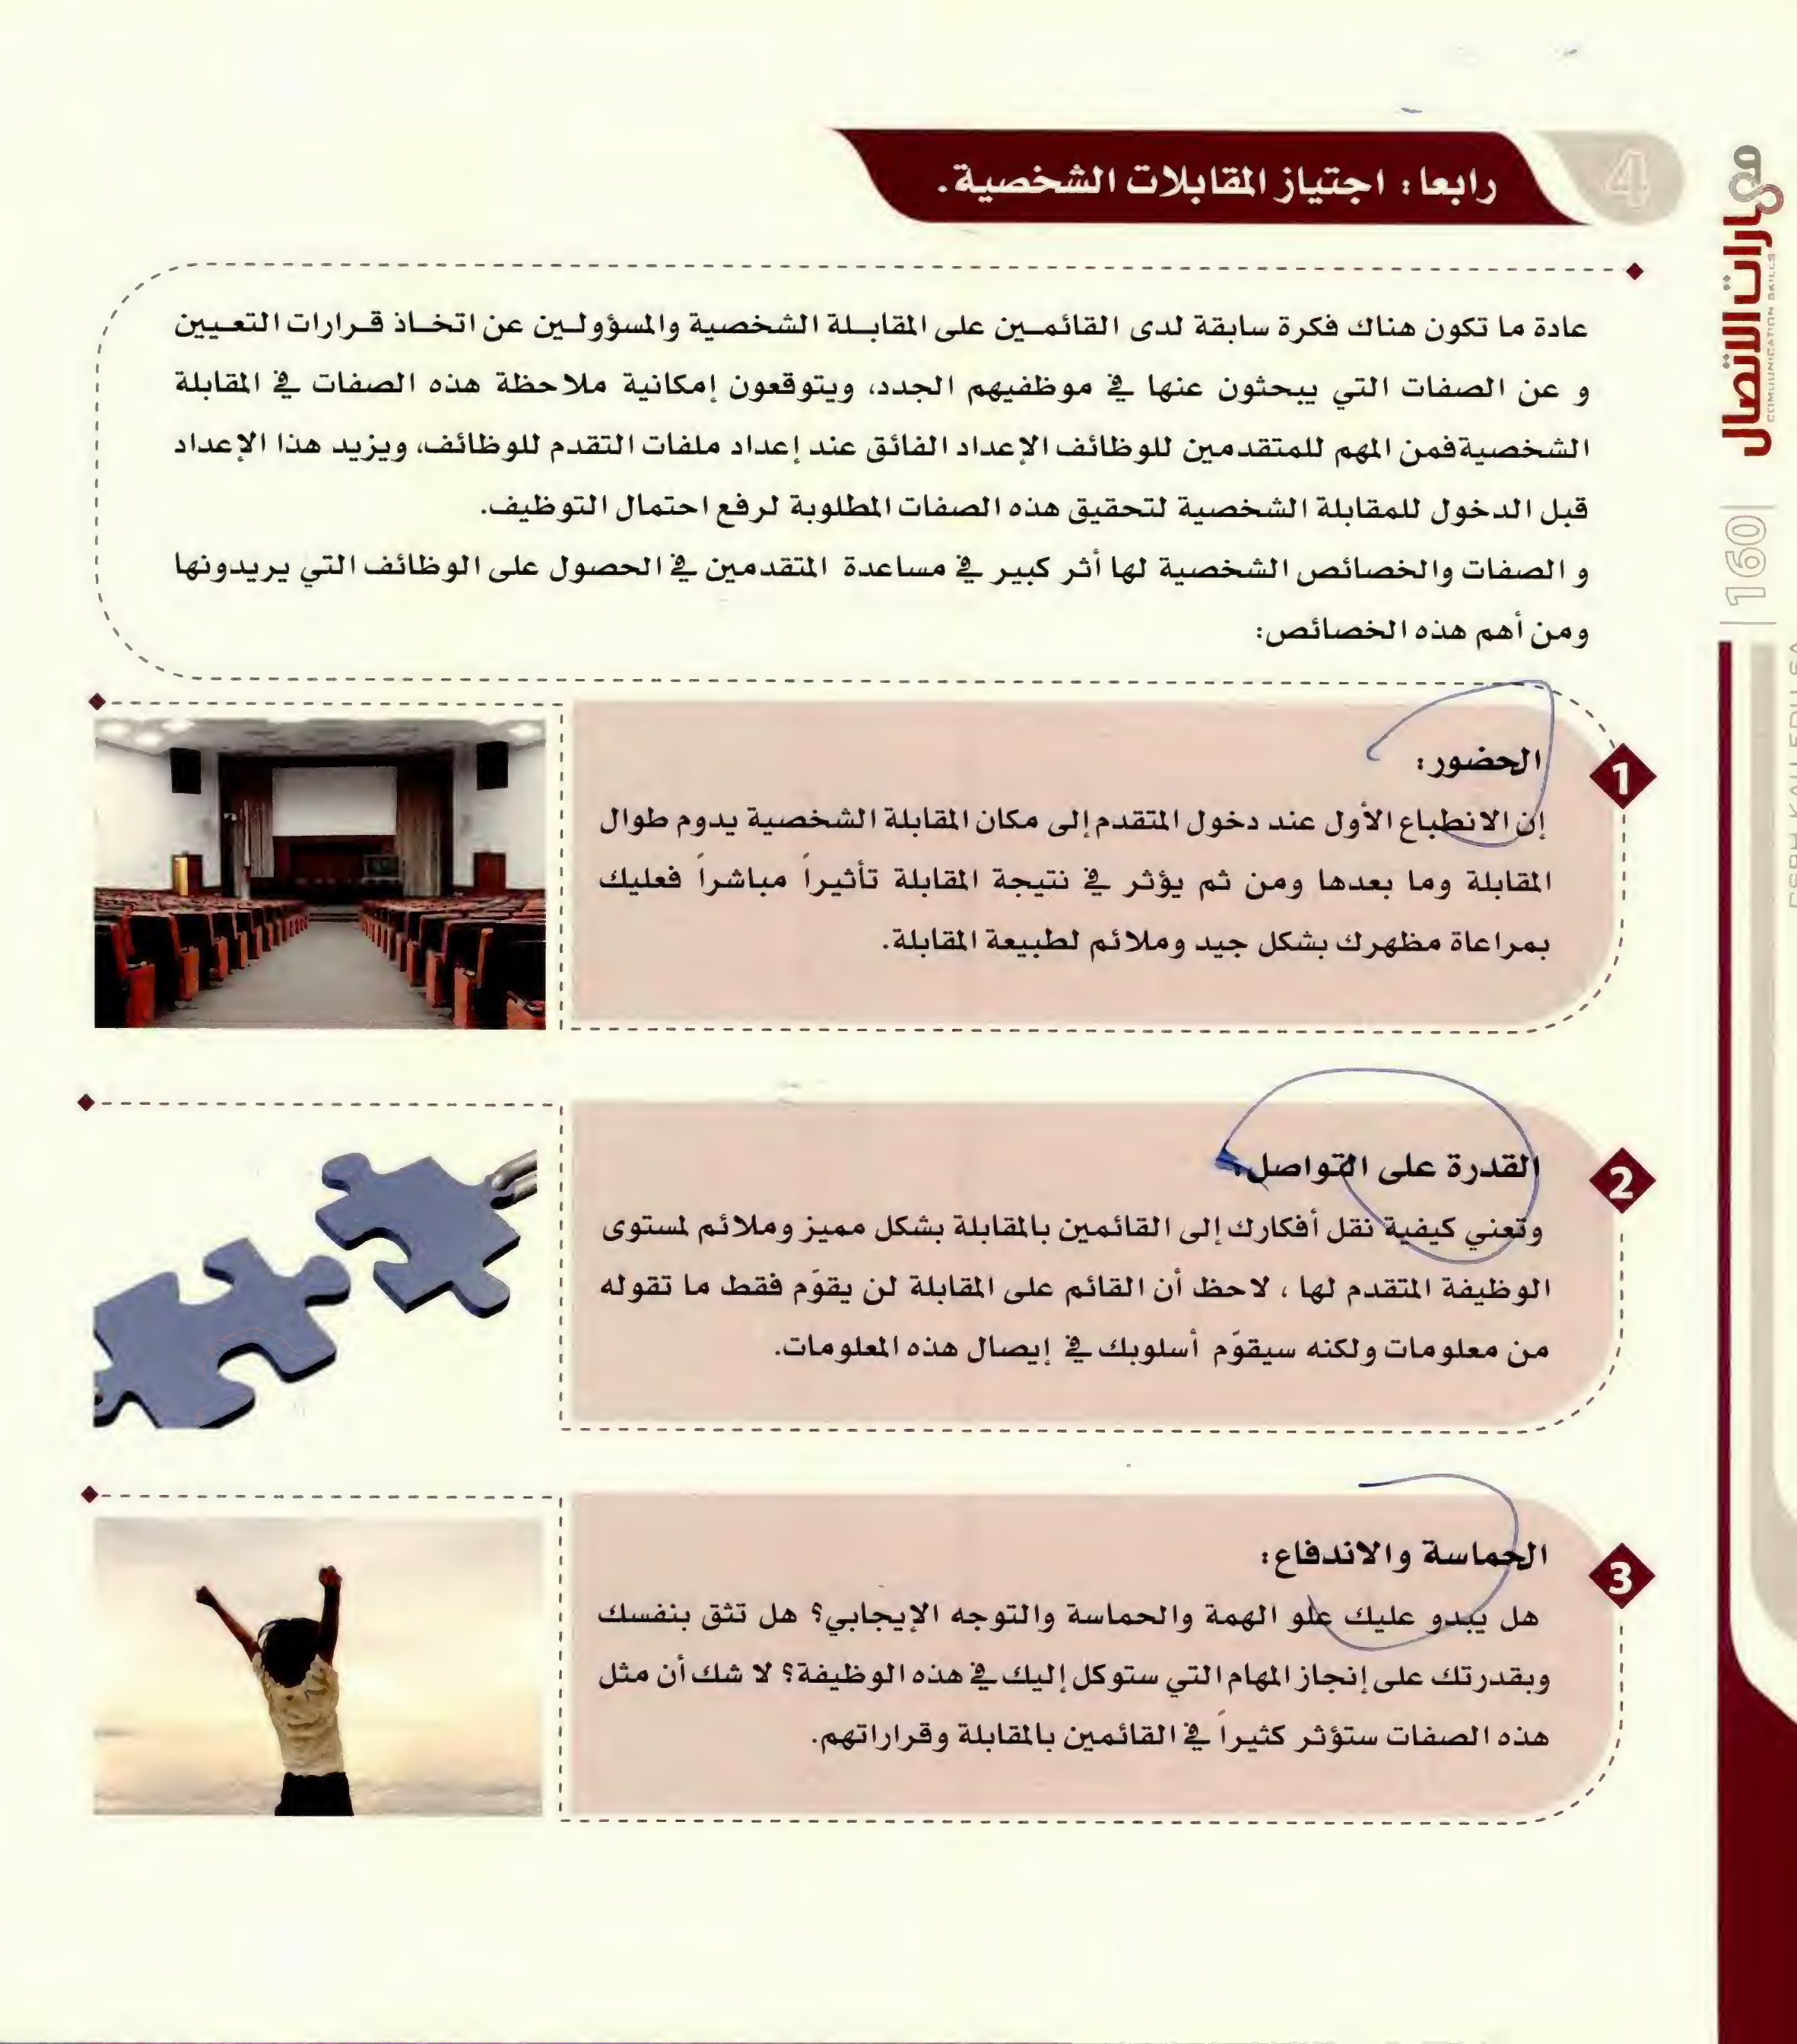 4
رابعا: اجتياز المقابلات الشخصية.
عادة ما تكون هناك فكرة سابقة لدى القائمـين على المقابـلة الشخصية والمسؤولـين عن اتخـاذ قـرارات التعـيين
و عن الصفات التي يبحثون عنها في موظفيهم الجدد، ويتوقعون إمكانية ملاحظة هذه الصفات في المقابلة
الشخصيةفمن المهم للمتقدمين للوظائف الإعداد الفائق عند إعداد ملفات التقدم للوظائف، ويزيد هذا الإعداد
قبل الدخول للمقابلة الشخصية لتحقيق هذه الصفات المطلوبة لرفع احتمال التوظيف.
و الصفات والخصائص الشخصية لها أثر كبير في مساعدة المتقدمين في الحصول على الوظائف التي يريدونها
ومن أهم هذه الخصائص:
1
الحضور:
إن الانطباع الأول عند دخول المتقدم إلى مكان المقابلة الشخصية يدوم طوال
المقابلة وما بعدها ومن ثم يؤثر في نتيجة المقابلة تأثيراً مباشراً فعليك
بمراعاة مظهرك بشكل جيد وملائم لطبيعة المقابلة.
2
القدرة على التواصل:
وتعني كيفية نقل أفكارك إلى القائمين بالمقابلة بشكل مميز وملائم لمستوى
الوظيفة المتقدم لها ، لاحظ أن القائم على المقابلة لن يقوّم فقط ما تقوله
من معلومات ولكنه سيقوّم أسلوبك في إيصال هذه المعلومات.
3
الحماسة والاندفاع:
هل يبدو عليك علو الهمة والحماسة والتوجه الإيجابي؟ هل تثق بنفسك
وبقدرتك على إنجاز المهام التي ستوكل إليك في هذه الوظيفة؟ لا شك أن مثل
هذه الصفات ستؤثر كثيراً في القائمين بالمقابلة وقراراتهم.
مهارات الاتصال
COMMUNICATION SKILLS
160